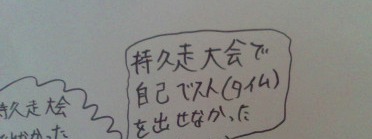 持久走大会で
自己ベスト(タイム)
を出せなかった
持久走大会